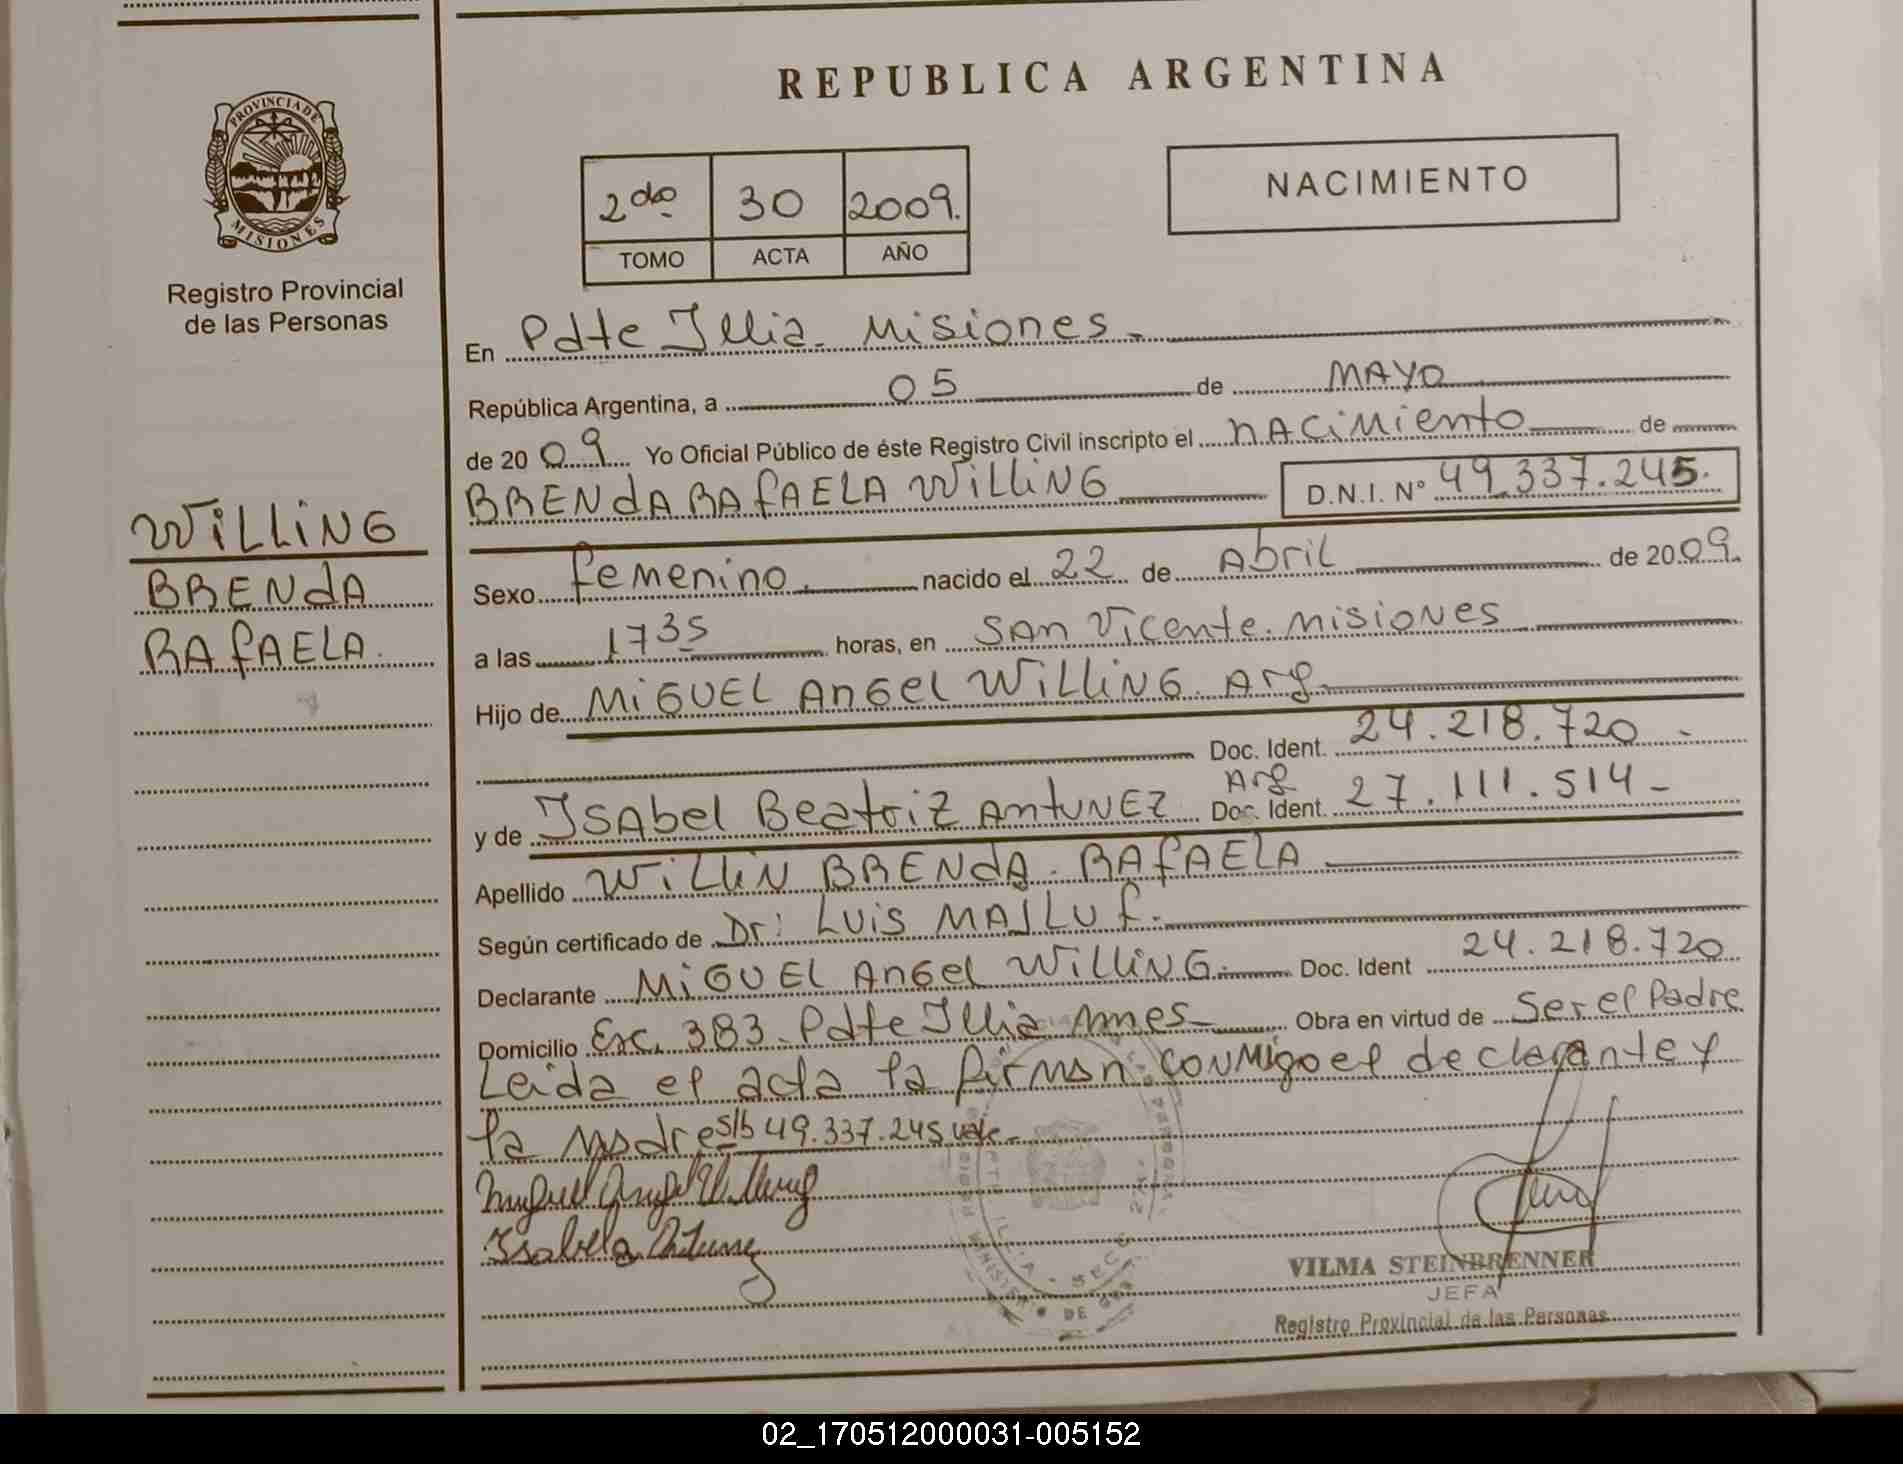 REPUBLICA ARGENTINA
PROVINCIA DE
MISIONES
Registro Provincial
de las Personas
2do 30 2009.
TOMO ACTA AÑO
NACIMIENTO
En Pdte Illia. Misiones.
República Argentina, a 05 de MAYO
de 2009 Yo Oficial Público de éste Registro Civil inscripto el nACiMiento de
BRENdA RAfAELA WiLLiNG D.N.I. Nº 49.337.245.
WiLLiNG
BRENdA
RAfAELA.
Sexo femenino. nacido el 22 de Abril de 2009.
a las 1735 horas, en SAn Vicente. misiones
Hijo de MiGUEL AnGel WiLLiNG. Arg.
Doc. Ident. 24.218.720 -
Arg
y de ISAbel BeatriZ AntUNEZ Doc. Ident. 27.111.514-
Apellido WiLLiN BRENdA. RAfAELA
Según certificado de Dr: LUiS MASLUf.
Declarante MiGUEL AnGel WiLLiNG. Doc. Ident 24.218.720
Domicilio Esc. 383. Pdte Illia mnes Obra en virtud de Ser el Padre
Leida el acta la firman conmigo el declarante y
la madre s/b 49.337.245 vale.
Miguel Angel Willing
Isabel Antunez
VILMA STEINBRENNER
JEFA
Registro Provincial de las Personas
02_170512000031-005152